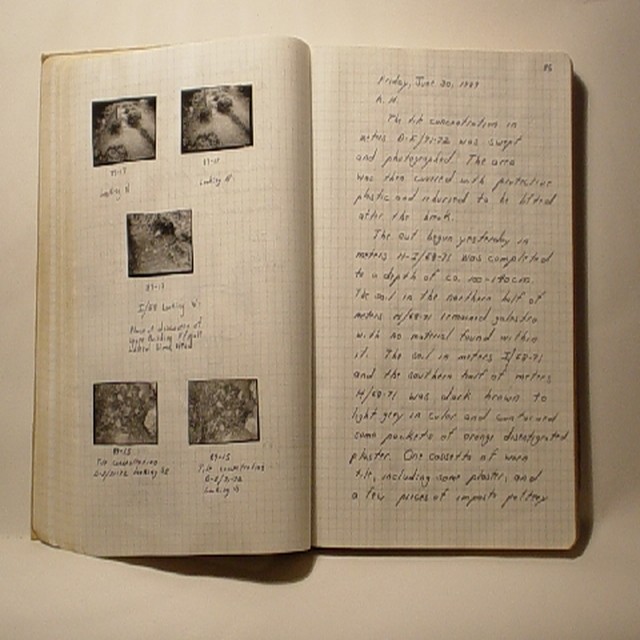 89-13
Looking N
Looking N.
89-14
I/68 Looking W.
Place of discovery of
89-15
Tile concentration
Looking SE
89-15
Tile concentration
D-E/71-72
Looking W
86
Friday, June 30, 1989
A. M.
The tile concentration in
meters D-E/71-72 was swept
and photographed. The area
was then covered with protective
plastic and reburied to be lifted
after the break.
The cut begun yesterday in
meters H-I/68-71 was completed
to a depth of ca.
The soil in the northern half of
meters H/68-71 remained galestro
with no material found within
it. The soil in meters I/68-71
and the southern half of meters
H/68-71 was dark brown to
light grey in color and contained
some pockets of orange disintegrated
plaster. One cassetta of worn
tile, including some plaster, and
a few pieces of impasto pottery